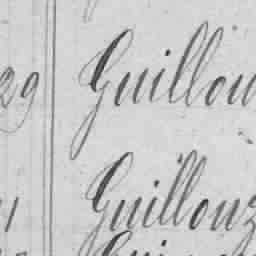 29 Guillou
1 Guillouz